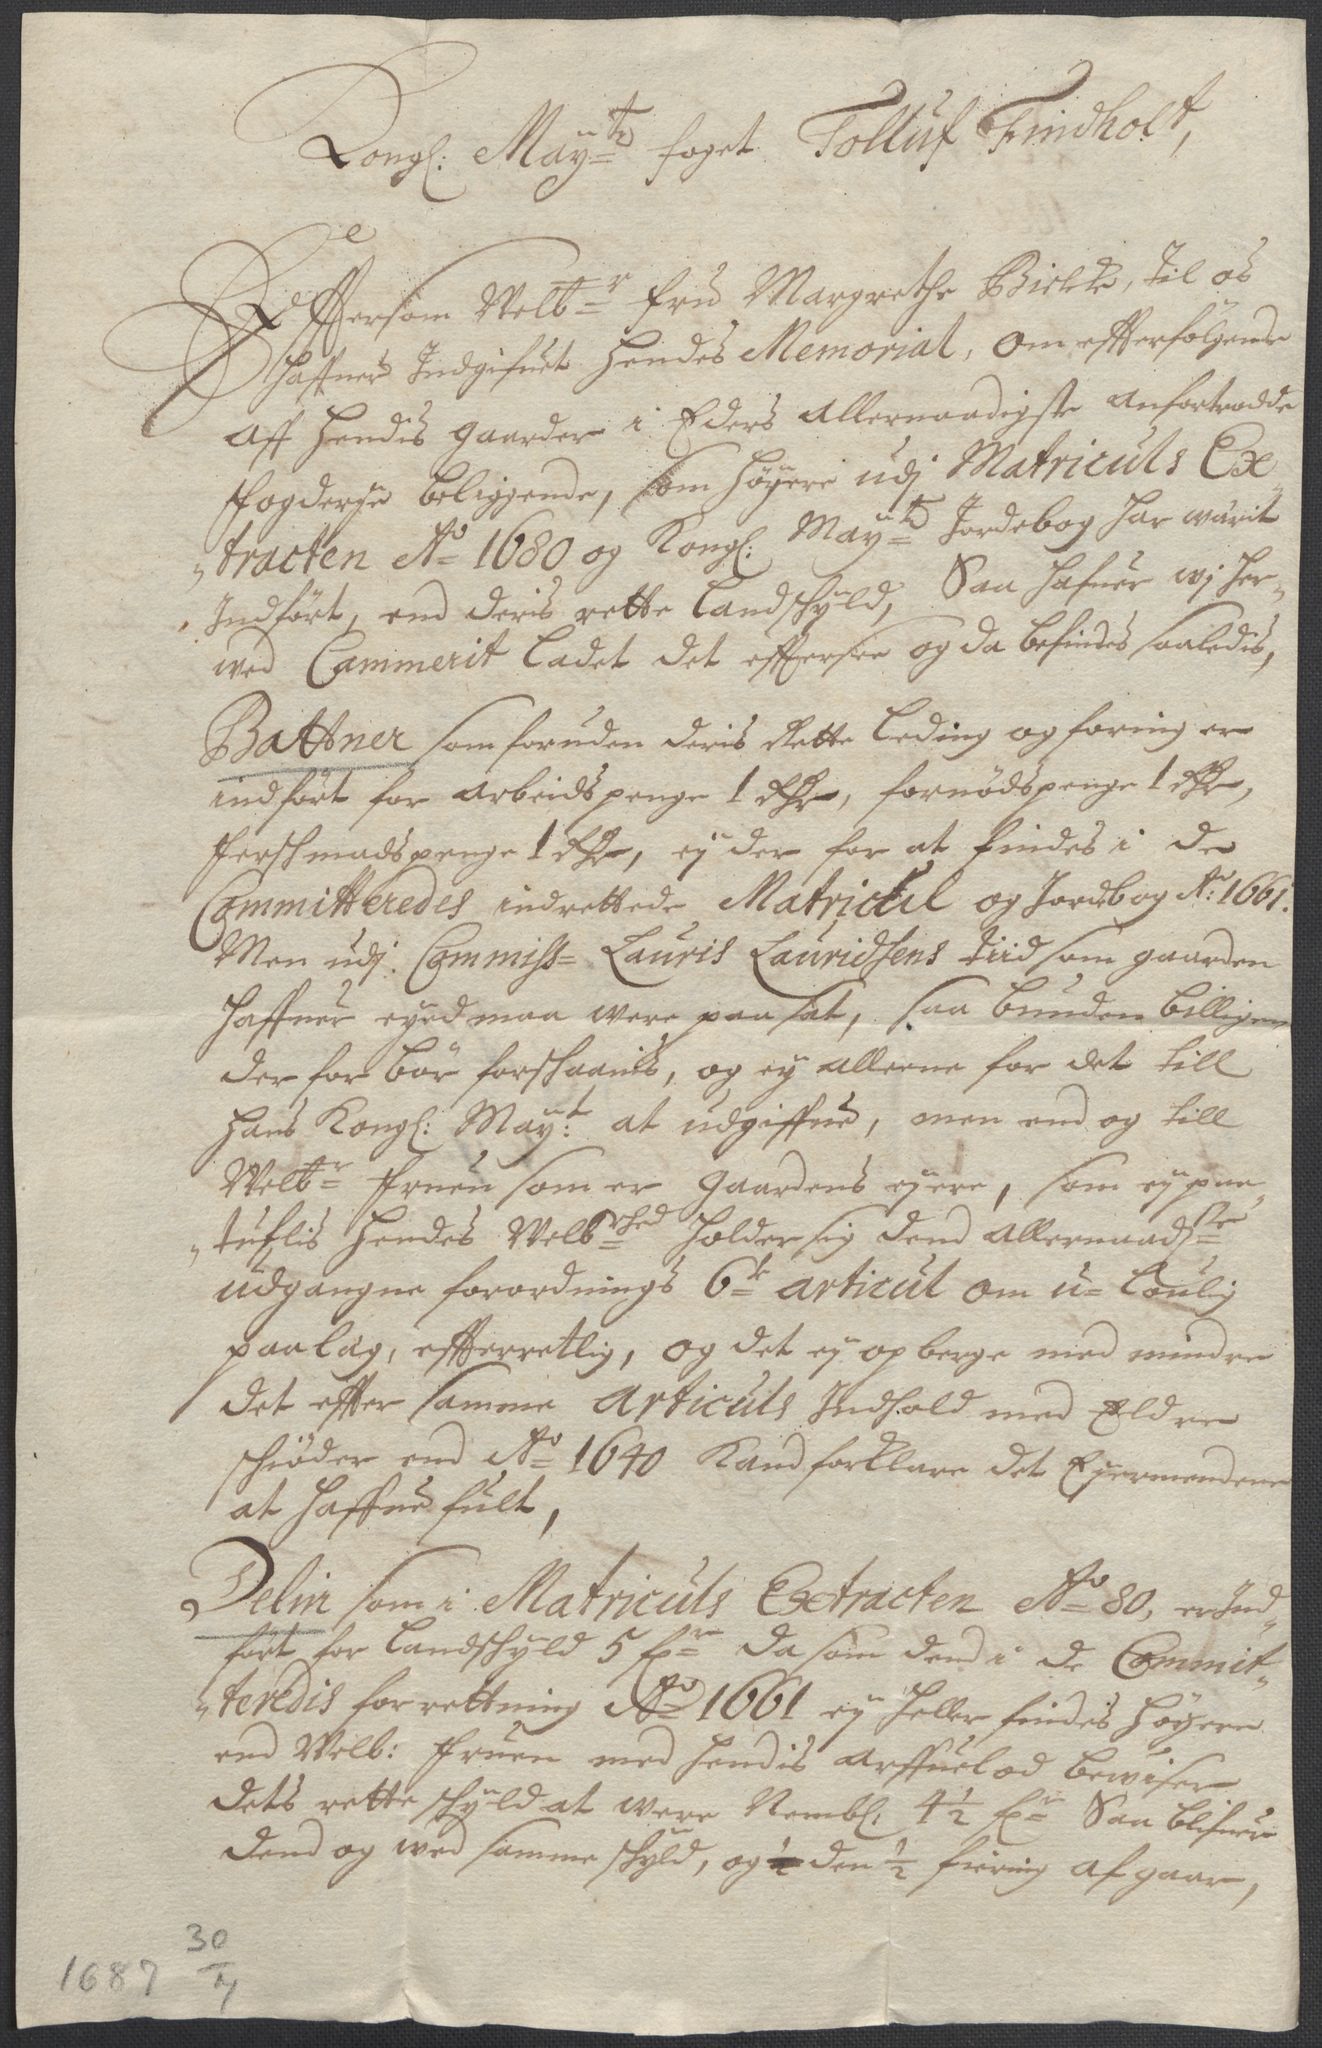 Kongl: May:ts foget Tolluf Findholt,
Efftersom Welb:r fru Margrethe Bielke, til os
haffuer Indgifuet hendes Memorial, om effterfølgende
aff hendis gaarder i Eders allernaadigste anfortrodde
fogderje beliggende, som høyere udj Matriculs Ex,,
,,tracten Ao 1680 og Kongl: May:ts Jordebog har wærit
Indført, end deris rette Landschyld, Saa hafuer wj her,,
wed Cammerit ladet det effersee og da befindes saaledis,
Battner som foruden deris Rette Leding og foring er
indført for arbeidspenge 1 Rdr, fornødspenge 1 Rdr,
ferschmadspenge 1 Rdr, ey der for at findes i de
Committeredes indrettede Matricul og Jordebog Ao: 1661.
Men udj Commiss= Lauris Lauridsens tiid som gaarden
haffuer eyed maa were paa sat, saa bunden billigen
der for bør forschaanis, og ey alleene for det till
hans Kongl: May:t at udgiffue, men end og till
Welb:r fruen som er gaardens eyere, som ey paa,,
,,tuflis hendes Welb:rhed holder sig dend allernaadste
udgangne forordnings 6te articul om u= loulig
paalag, effterretlig, og det ey opberge med mindre
det effter samme articuls Indhold med Eldre
schiøder end Ao 1640 kand forklare det Eyermendene
at haffue fult,
Delin som i Matriculs Extracten Ao 80, er Ind,,
ført for Landschyld 5 da som dend i de Commit,,
,,teredis forrettning Ao 1661 ey heller findis høyere
end Welb: fruen med hendis arffuelod bewiser
dets rette schyld at were Nembl: 4½ Saa blifuer
dend og wed samme schyld, og den ½ fiering afgaar,
1687 30/4